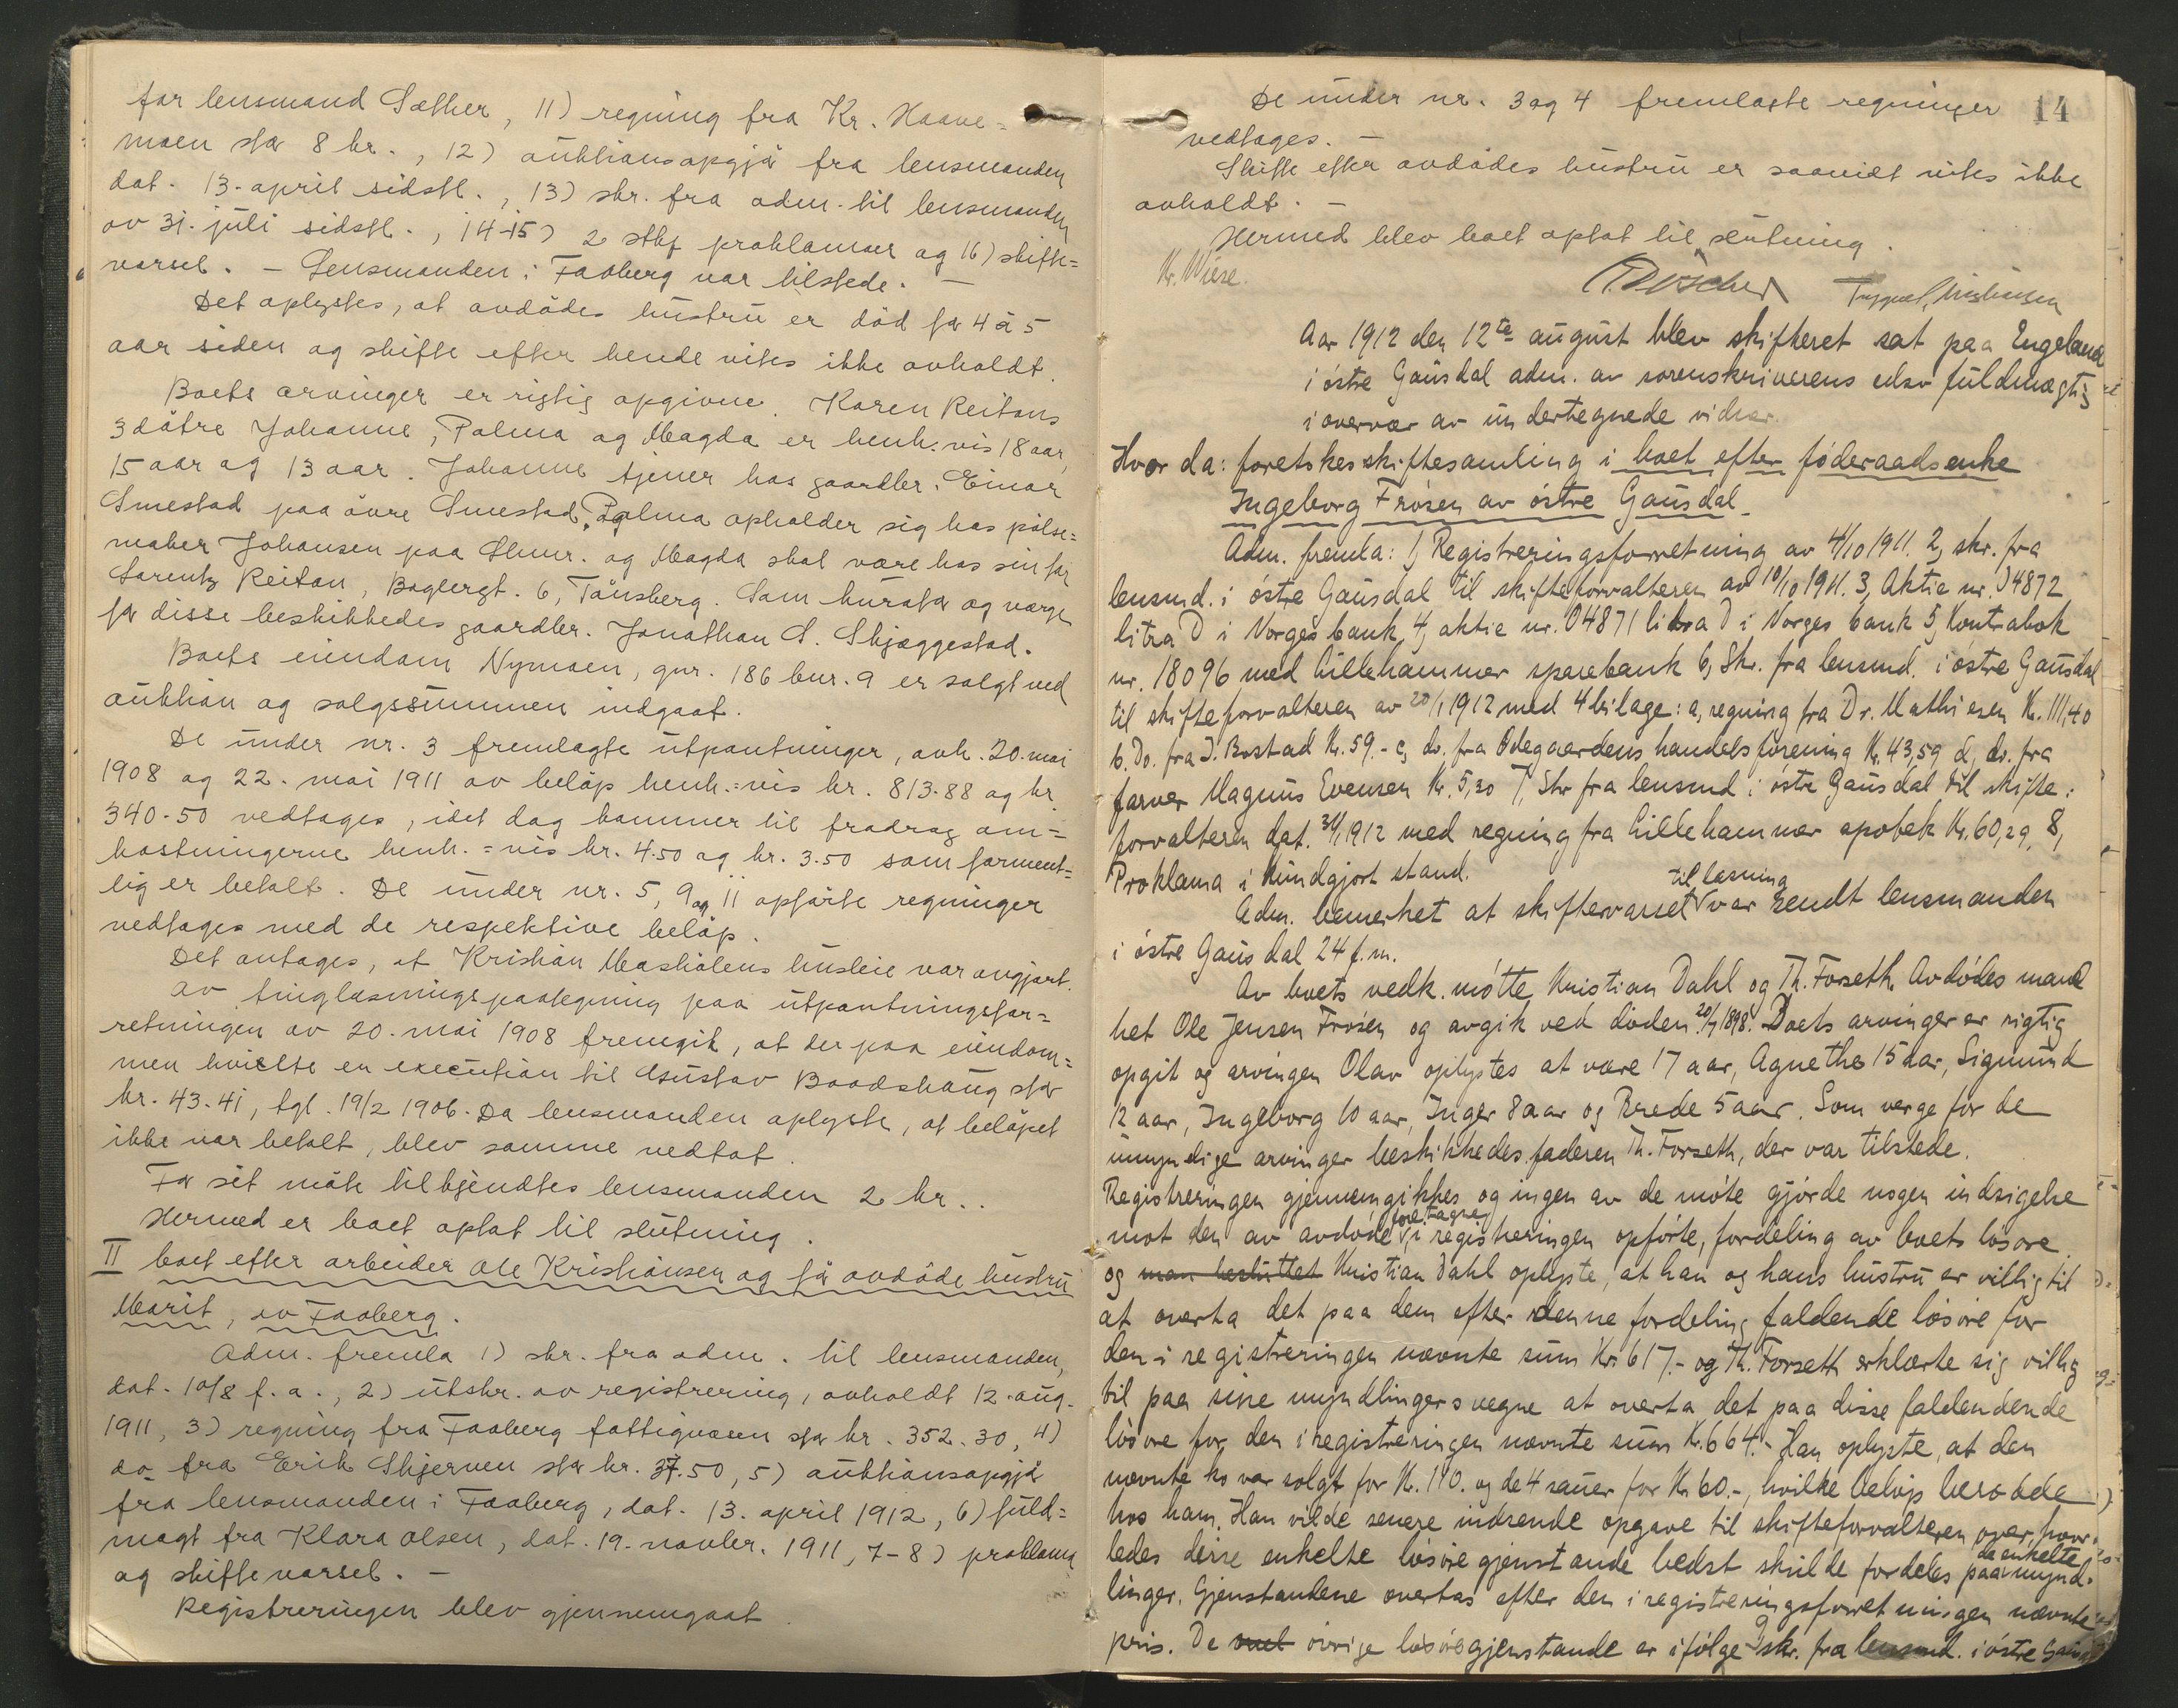 for lensmand Sæther, 11) regning fra Kr. Haave=
moen stor 8 kr., 12) auktionsopgjør fra lensmanden
dat. 13. april sidstl., 13) skr. fra adm. til lensmanden
av 31. juli sidstl., 14-15) 2 stkr. proklamaer og 16) skifte=
varsel. – Lensmanden i Faaberg var tilstede. –
Det oplystes, at avdødes hustru er død for 4 à 5
aar siden og skifte efter hende vites ikke avholdt.
Boets arvinger er rigtig opgivne. Karen Reitans
3 døtre Johanne, Palma og Magda er henh.vis 18 aar,
15 aar og 13 aar. Johanne tjener hos gaardbr. Einar
Smestad paa øvre Smestad, Palma opholder sig hos pølse=
maker Johansen paa Lhmr. og Magda skal være hos sin far
Lorentz Reitan, Baglergt. 6, Tønsberg. Som kurator og verge
for disse beskikkedes gaardbr. Jonathan S. Skjæggestad.
Boets eiendom Nymoen, gnr. 186 bnr. 9 er solgt ved
auktion og salgssummen indgaat.
De under nr. 3 fremlagte utpantninger, avh. 20. mai
1908 og 22. mai 1911 av beløp henh.=vis kr. 813.88 og kr.
340.50 vedtages, idet dog kommer til fradrag om=
kostningerne henh.=vis kr. 4.50 og kr. 3.50 som forment=
lig er betalt. De under nr. 5, 9 og 11 opførte regninger
vedtages med de respektive beløp.
Det antages, at Kristian Maskølens husleie var avgjort.
Av tinglæsningspaategning paa utpantningsfor=
retningen av 20. mai 1908 fremgik, at der paa eiendom=
men hvilte en execution til Gustav Baadshaug stor
kr. 43.41, tgl. 19/2 1906. Da lensmanden oplyste, at beløpet
ikke var betalt, blev samme vedtat.
For sit møte tilkjendtes lensmanden 2 kr..
Hermed er boet optat til slutning.
II boet efter arbeider Ole Kristiansen og før avdøde hustru
Marit, av Faaberg.
Adm. fremla 1) skr. fra adm. til lensmanden,
dat. 10/8 f.a., 2) utskr. av registrering, avholdt 12. aug.
1911, 3) regning fra Faaberg fattigvæsen stor kr. 352.30, 4)
do fra Erik Skjerven stor kr. 37.50, 5) auktionsopgjør
fra lensmanden i Faaberg, dat. 13. april 1912, 6) fuld=
magt fra Klara Olsen, dat. 19. novbr. 1911, 7-8) proklama
og skiftevarsel. –
Registreringen blev gjennemgaat.
14
De under nr. 3 og 4 fremlagte regninger
vedtages. –
Skifte efter avdødes hustru er saavidt vites ikke
avholdt. –
Hermed blev boet optat til slutning.
Kr. Wiese.
Aar 1912 den 12te august blev skifteret sat paa Engeland
i østre Gausdal adm. av sorenskriverens edsv fuldmægtig
i overvær av undertegnede vidner.
Hvor da: foretokes skiftesamling i boet efter føderaadsenke
Ingeborg Frøsen av østre Gausdal.
Adm. fremla: 1, Registreringsforretning av 4/10 1911. 2, skr. fra
lensmd. i østre Gausdal til skifteforvalteren av 10/10 1911. 3, Aktie nr. 04872
litra D i Norges bank, 4, aktie nr. 04871 litra D i Norges bank 5, Kontrabok
nr. 18096 med Lillehammer sparebank 6, Skr. fra lensmd. i østre Gausdal
til skifteforvalteren av 20/1 1912 med 4 bilage: a, regning fra Dr. Mathiesen Kr. 111,40
b. Do. fra J. Bostad Kr. 59.- c, do. fra Ødegaardens handelsforening Kr. 43,59 d, do. fra
farver Magnus Evensen Kr. 5,30 7, Skr fra lensmd i østre Gausdal til skifte:
forvalteren dat. 31/1 1912 med regning fra Lillehammer apotek Kr. 60,29, 8,
Proklama i kundgjort stand.
Adm. bemerket at skiftevarsel til læsning var sendt lensmanden
i østre Gausdal 24 f.m.
Av boets vedk. møtte Kristian Dahl og Th. Forseth. Avdødes mand
het Ole Jensen Frøsen og avgik ved døden 20/7 1898. Boets arvinger er rigtig
opgit og arvingen Olav oplystes at være 17 aar, Agnethe 15 aar, Sigmund
12 aar, Ingeborg 10 aar, Inger 8 aar og Brede 5 aar. Som verge for de
umyndige arvinger beskikkedes faderen Th. Forseth, der var tilstede.
Registreringen gjennemgikkes og ingen av de møtte gjorde nogen indsigelse
mot den av avdøde foretagne, i registreringen opførte, fordeling av boets løsøre
og man besluttet Kristian Dahl oplyste, at han og hans hustru er villig til
at overta det paa dem efter denne fordeling faldende løsøre for
den i registreringen nævnte sum Kr. 617.- og Th. Forseth erklærte sig villig
til paa sine myndlingers vegne at overta det paa disse faldendende
løsøre for den i registreringen nævnte sum Kr. 664.- Han oplyste, at den
nævnte ko var solgt for Kr. 110. og de 4 sauer for Kr 60.-, hvilke beløp beroede
hos ham. Han vilde senere indsende opgave til skifteforvalteren over hvor=
ledes disse enkelte løsøregjenstande bedst skulde fordeles paa de enkelte mynd=
linger. Gjenstandene overtas efter den i registreringsforretningen nævnte
pris. De øvrige løsøregjenstande er ifølge skr. fra lensmd. i østre Gausd